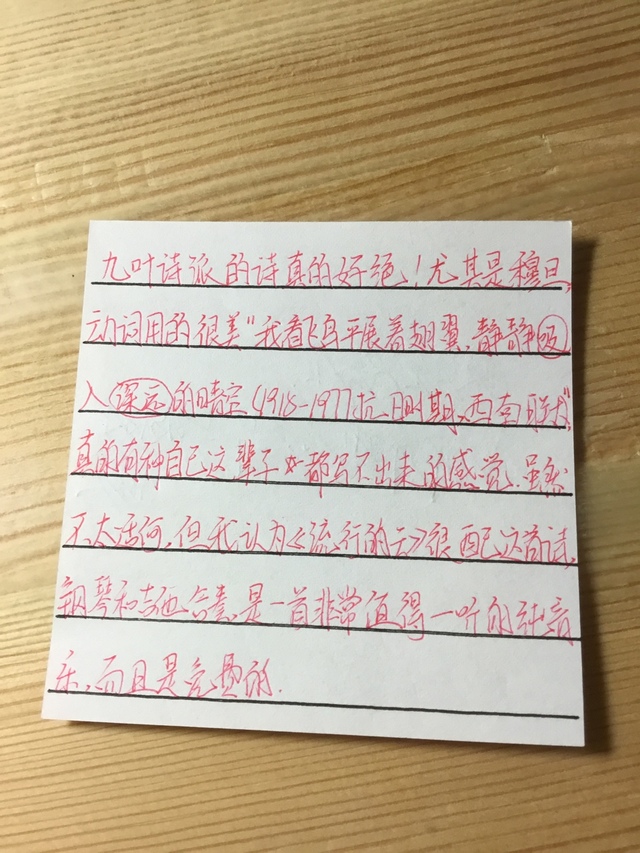 九叶诗派的诗真的好绝！尤其是穆旦,
动词用的很美"我看飞鸟平展着翅翼,静静吸
入深远的晴空(1918-1977抗日时期,西南联大"
真的有种自己这辈子都写不出来的感觉.虽然
不太,但我认为《流行的云》很配这首诗,
钢琴和吉他合奏,是一首非常值得一听的纯音
乐,而且是免费的.